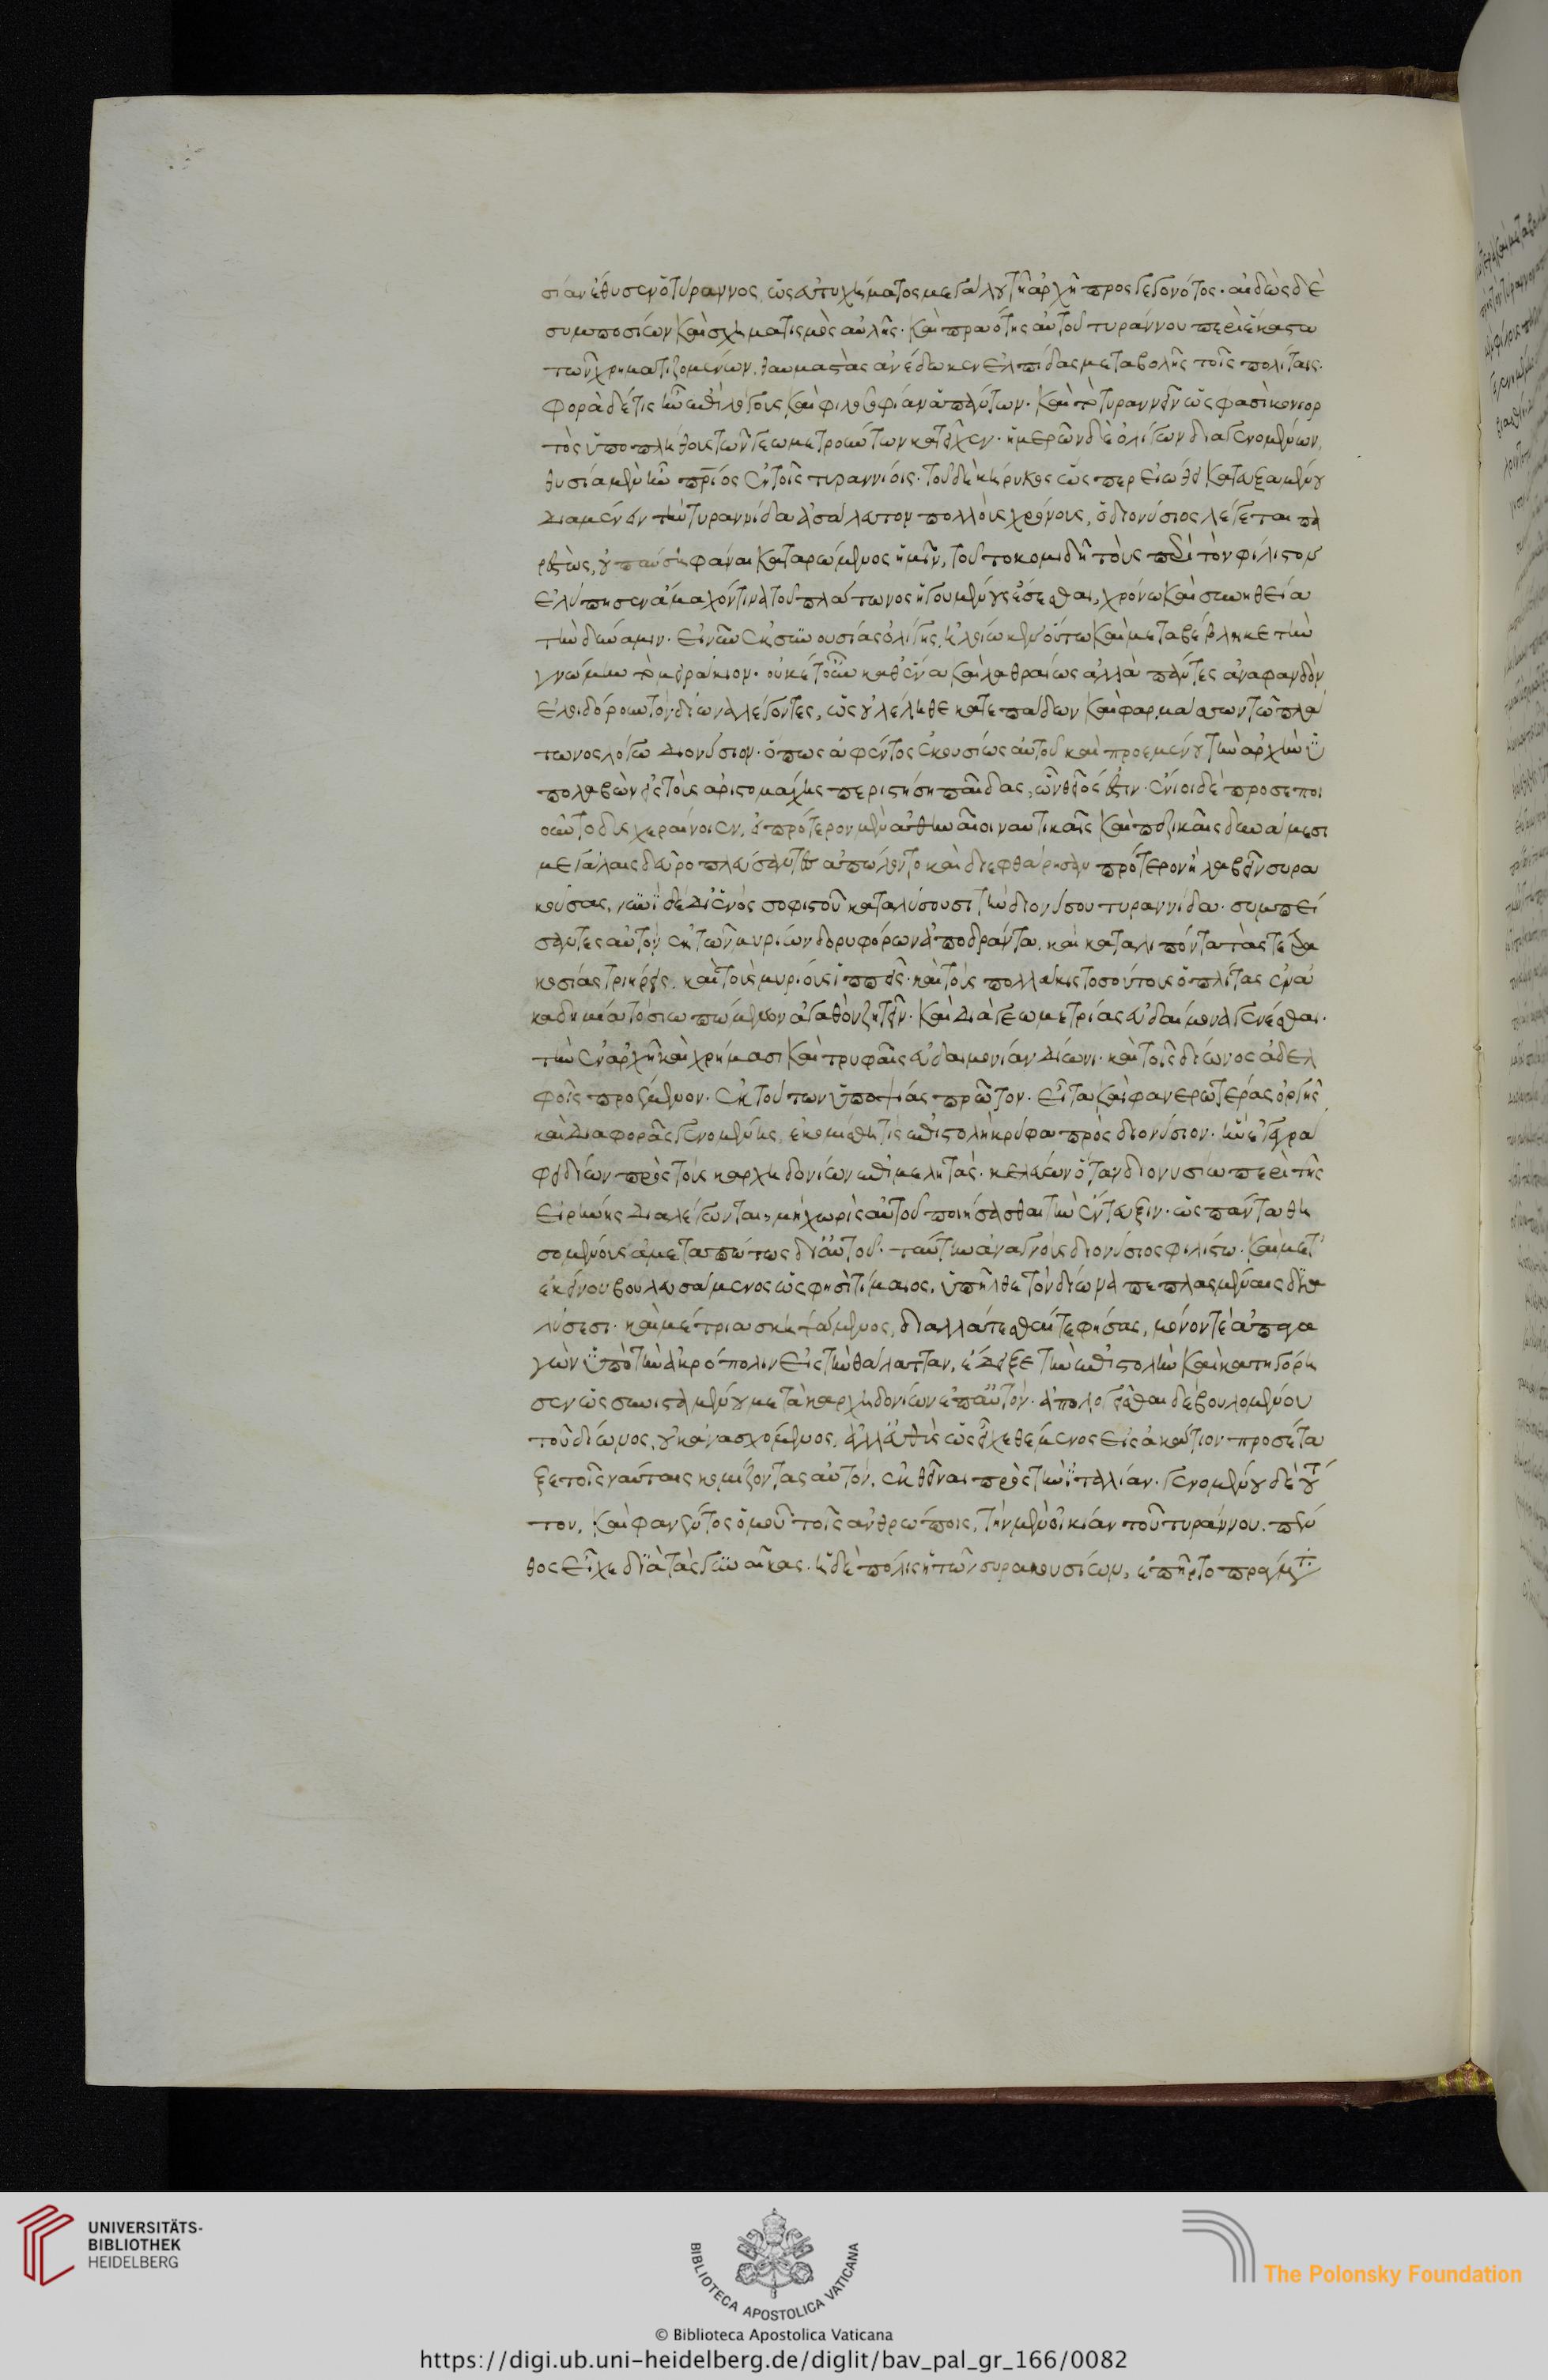 σίαν ἔθυσεν ὁ τύραννος, ὡς εὐτυχήματος μεγάλου τῇ ἀρχῇ προσγεγονότος· αἰδὼς δὲ
συμποσίων καὶ σχηματισμὸς αὐλῆς· καὶ πραότης αὐτοῦ τυράννου περὶ ἕκαστα
τῶν χρηματιζομένων, θαυμαστὰς ἀνέδωκεν ἐλπίδας μεταβολῆς τοῖς πολίταις·
φορὰ δέ τις ἦν ἐπὶ λόγους καὶ φιλοσοφίαν ἁπάντων· καὶ τὸ τυραννεῖον ὥς φασι κονιορ
τὸς ὑπὸ πλήθους τῶν γεωμετρούντων κατεῖχεν· ἡμερῶν δὲ ὀλίγων διαγενομένων,
θυσία μὲν ἦν πάτριος ἐν τοῖς τυραννίοις· τοῦ δὲ κήρυκος ὥσπερ εἰώθει κατευξαμένου
διαμένειν τὴν τυραννίδα ἀσάλευτον πολλοὺς χρόνους, ὁ διονύσιος λέγεται πα
ρεστὼς, οὐ παύσῃ φάναι καταρώμενος ἡμῖν, τοῦτο κομιδῇ τοὺς περὶ τὸν φίλιστον
ἐλύπησεν ἄμαχόν τινα τοῦ πλάτωνος ἡγουμένους ἔσεσθαι, χρόνω καὶ συνηθεία
τὴν δύναμιν· εἰ νῦν ἐκ συνουσίας ὀλίγης, ἠλοίωκεν οὕτω καὶ μεταβέβληκε τὴν
γνώμην τὸ μειράκιον· οὐκέτ οὖν καθ ἕνα καὶ λαθραίως ἀλλὰ πάντες ἀναφανδὸν
ἐλοιδόρουν τὸν δίωνα λέγοντες, ὡς οὐ λέληθε κατεπάδων καὶ φαρμάσσων τῶ πλά
τωνος λόγω διονύσιον· ὅπως ἀφέντος ἑκουσίως αὐτοῦ καὶ προεμένου τὴν ἀρχὴν ὑ
πολαβὼν εἰς τοὺς ἀριστομάχης περιστήση παῖδας, ὧν θεῖός ἐστιν· ἔνιοι δὲ προσεποι
οῦντο δυσχεραίνοιεν, εἰ πρότερον μὲν ἀθηναῖοι ναυτικαῖς καὶ πεζικαῖς δυνάμεσι
μεγάλαις δεῦρο πλεύσαντες ἀπώλοντο καὶ διεφθάρησαν πρότερον ἢ λαβεῖν συρα
κούσας, νυνὶ δὲ δι ἑνὸς σοφιστοῦ καταλύσουσι τὴν διονύσου τυραννίδα· συμπεί
σαντες αὐτὸν ἐκ τῶν μυρίων δορυφόρων ἀποδράντα, καὶ καταλιπόντα τὰς τετρα
κοσίας τριήρεις, καὶ τοὺς μυρίους ἱππεῖς· καὶ τοὺς πολλάκις τοσούτους ὁπλίτας ἐν ἀ
καδημία τὸ σιωπώμενον ἀγαθὸν ζητεῖν· καὶ διὰ γεωμετρίας εὐδαίμονα γενέσθαι·
τὴν ἐν ἀρχῇ καὶ χρήμασι καὶ τρυφαῖς εὐδαιμονίαν δίωνι· καὶ τοῖς δίωνος ἀδελ
φοῖς προεμενον· ἐκ τούτων ὑποψίας πρῶτον· εἶτα καὶ φανερωτέρας ὀργῆς
καὶ διαφορᾶς γενομένης, ἐκομίσθη τις ἐπιστολὴ κρύφα πρὸς διονύσιον· ἣν ἐγεγρά
φει δίων πρὸς τοὺς καρχηδονίων ἐπιμελητάς· κελεύων ὅταν διονυσίω περὶ τῆς
εἰρήνης διαλέγωνται, μὴ χωρὶς αὐτοῦ ποιήσασθαι τὴν ἔντευξιν· ὡς πάντα θη
σομένους ἀμεταπτώτως δι αὐτοῦ· ταύτην ἀναγνοὺς διονύσιος φιλίστω· καὶ μετ
ἐκείνου βουλευσάμενος ὥς φησι τίμαιος, ὑπῆλθε τὸν δίωνα πεπλασμέναις δια
λύσεσι· καὶ μέτρια σκηψάμενος, διαλλάττεσθαί τε φήσας, μόνον τὲ ἀπαγα
γὼν ὑπὸ τὴν ἀκρόπολιν εἰς τὴν θάλατταν, ἔδειξε τὴν ἐπιστολὴν καὶ κατηγόρη
σεν ὡς συνισταμένου μετὰ καρχηδονίων ἐπ αὐτόν· ἀπολογεῖσθαι δὲ βουλομένου
τοῦ δίωνος, οὐκ ἀνασχόμενος, ἀλλ εὐθὺς ὡς εἶχε θέμενος εἰς ἀκάτιον προσέτα
ξε τοῖς ναύταις κομίζοντας αὐτόν, ἐκθεῖναι πρὸς τὴν ἰταλίαν· γενομένου δὲ τού
του, καὶ φανέντος ὠμοῦ τοῖς ἀνθρώποις, τὴν μὲν οἰκίαν τοῦ τυράννου, πέν
θος εἶχε διὰ τὰς γυναῖκας· ἡ δὲ πόλις ἡ τῶν συρακουσίων, ἐπῆρτο πράγματ
UNIVERSITÄTS-
BIBLIOTHEK
HEIDELBERG
BIBLIOTECA APOSTOLICA VATICANA
The Polonsky Foundation
© Biblioteca Apostolica Vaticana
https://digi.ub.uni-heidelberg.de/diglit/bav_pal_gr_166/0082